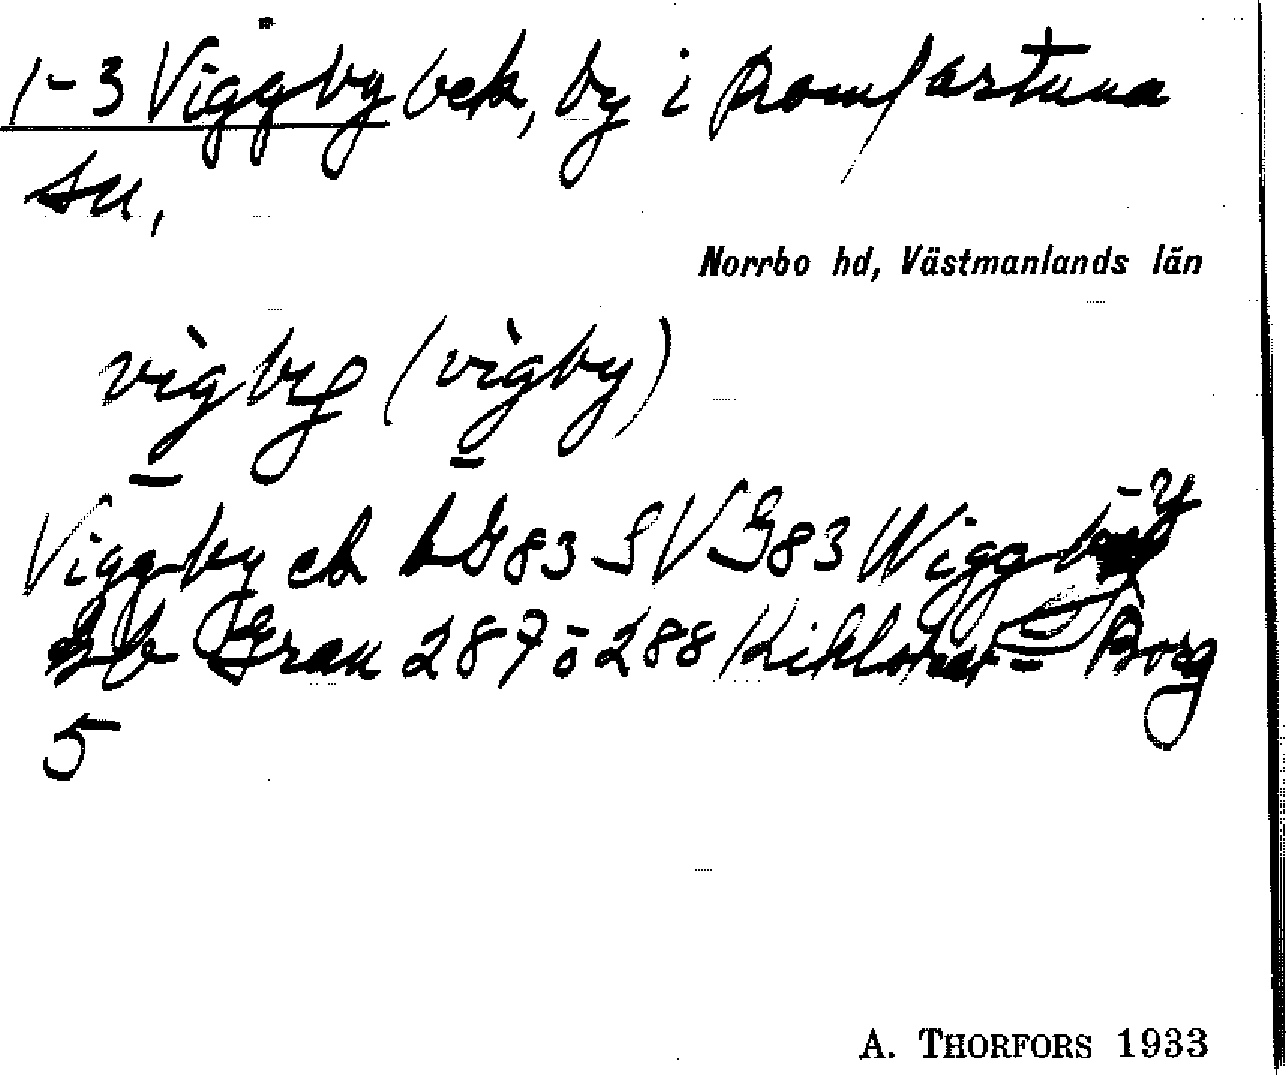 1-3 Viggby bek, by i Romfartuna
sn,
Norrbo hd, Västmanlands län
vìgby (vìgby)
Viggby ek LG83 SVG83 Wiggby -y
Gran 287 ö 288 Borg
5
A. THORFORS 1933